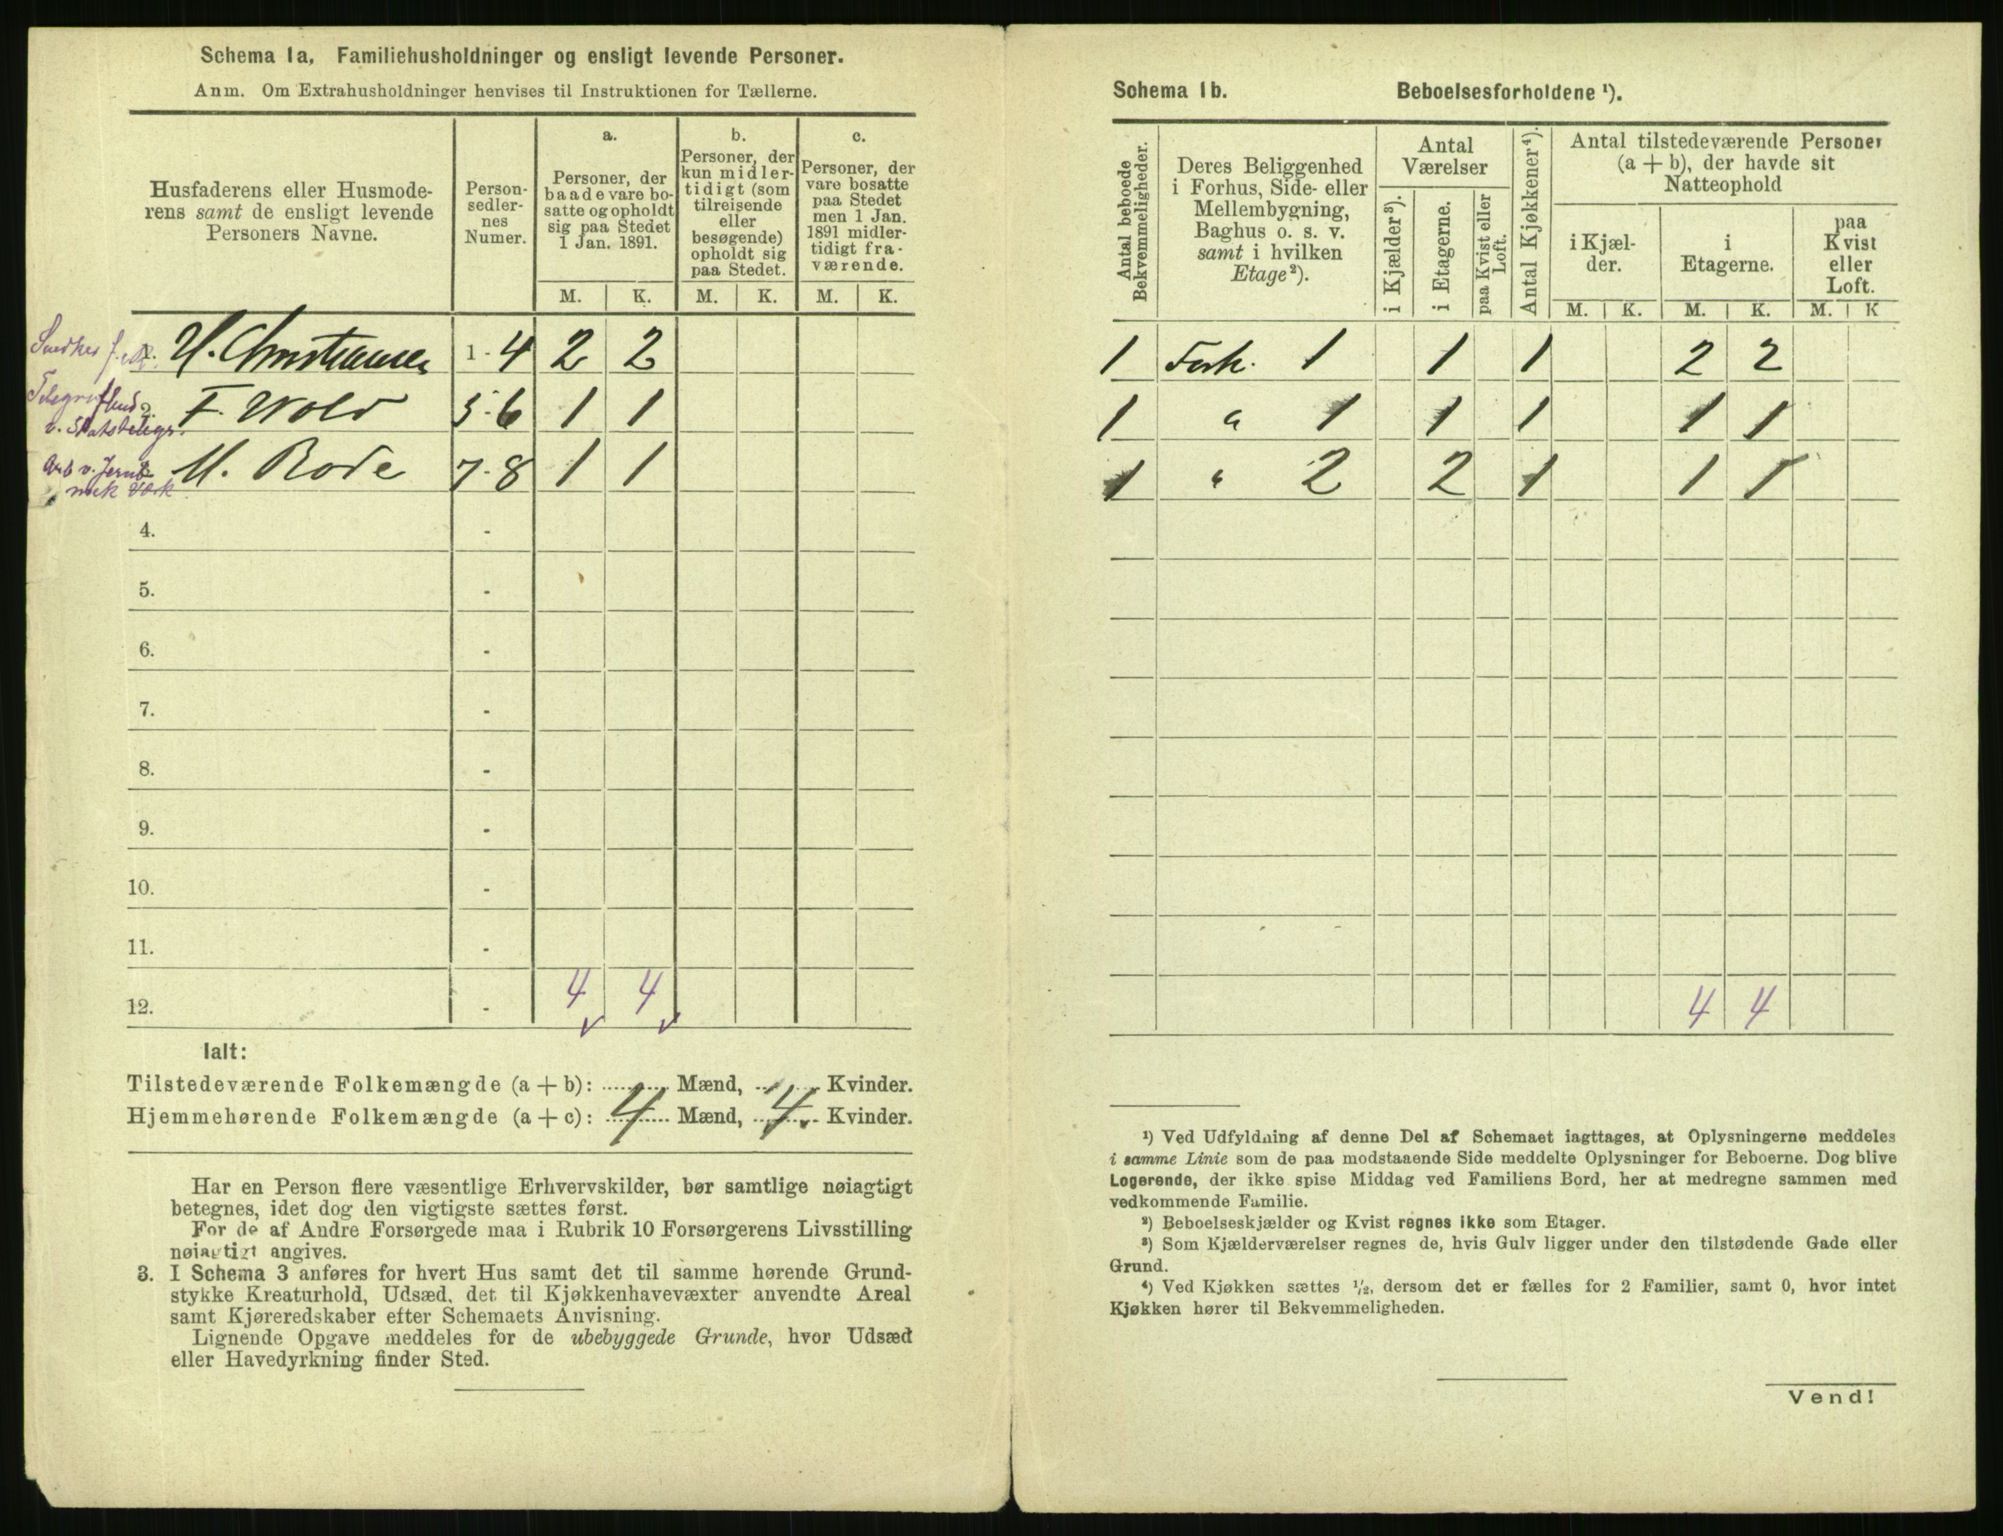 Schema 1a, Familiehusholdninger og ensligt levende Personer.
Anm. Om Extrahusholdninger henvises til Instruktionen for Tællerne.
Husfaderens eller Husmode-
rens samt de ensligt levende
Personers Navne.
Person-
sedler-
nes
Numer.
a.
Personer, der
baade vare bo-
satte og opholdt
sig paa Stedet
1 Jan. 1891.
b.
Personer, der
kun midler-
tidigt (som
tilreisende
eller
besøgende)
opholdt sig
paa Stedet.
c.
Personer, der
vare bosatte
paa Stedet
men 1 Jan.
1891 midler-
tidigt fra-
værende.
M. K. M. K. M. K.
H. Christiansen 1-4 2 2
2. F. Wold 5-6 1 1
M. Rode 7-8 1 1
4. -
5. -
6. -
7. -
8. -
9. -
10. -
11. -
4 4
12. -
Ialt:
Tilstedeværende Folkemængde (a + b): Mænd, Kvinder.
Hjemmehørende Folkemængde (a + c): 4 Mænd, 4 Kvinder.
Har en Person flere væsentlige Erhvervskilder, bør samtlige nøiagtigt
betegnes, idet dog den vigtigste sættes først.
For de af Andre Forsørgede maa i Rubrik 10 Forsørgerens Livsstilling
nøiagtigt angives.
3. I Schema 3 anføres for hvert Hus samt det til samme hørende Grund-
stykke Kreaturhold, Udsæd, det til Kjøkkenhavevæxter anvendte Areal
samt Kjøreredskaber efter Schemaets Anvisning.
Lignende Opgave meddeles for de ubebyggede Grunde, hvor Udsæd
eller Havedyrkning finder Sted.
Schema 1b. Beboelsesforholdene ¹).
Antal beboede
Bekvemmeligheder.
Deres Beliggenhed
i Forhus, Side- eller
Mellembygning,
Baghus o. s. v.
samt i hvilken
Etage²).
Antal
Værelser
i Kjælder³).
i Etagerne.
paa Kvist eller
Loft.
Antal Kjøkkener⁴).
Antal tilstedeværende Personer
(a + b), der havde sit
Natteophold
i Kjæl-
der.
i
Etagerne.
paa
Kvist
eller
Loft.
M. K. M. K. M. K
1 Forh. 1 1 1 2 2
1 " 1 1 1 1 1
1 " 2 2 1 1 1
4 4
¹) Ved Udfyldning af denne Del af Schemaet iagttages, at Oplysningerne meddeles
i samme Linie som de paa modstaaende Side meddelte Oplysninger for Beboerne. Dog blive
Logerende, der ikke spise Middag ved Familiens Bord, her at medregne sammen med
vedkommende Familie.
²) Beboelseskjælder og Kvist regnes ikke som Etager.
³) Som Kjælderværelser regnes de, hvis Gulv ligger under den tilstødende Gade eller
Grund.
⁴) Ved Kjøkken sættes ½, dersom det er fælles for 2 Familier, samt 0, hvor intet
Kjøkken hører til Bekvemmeligheden.
Vend!